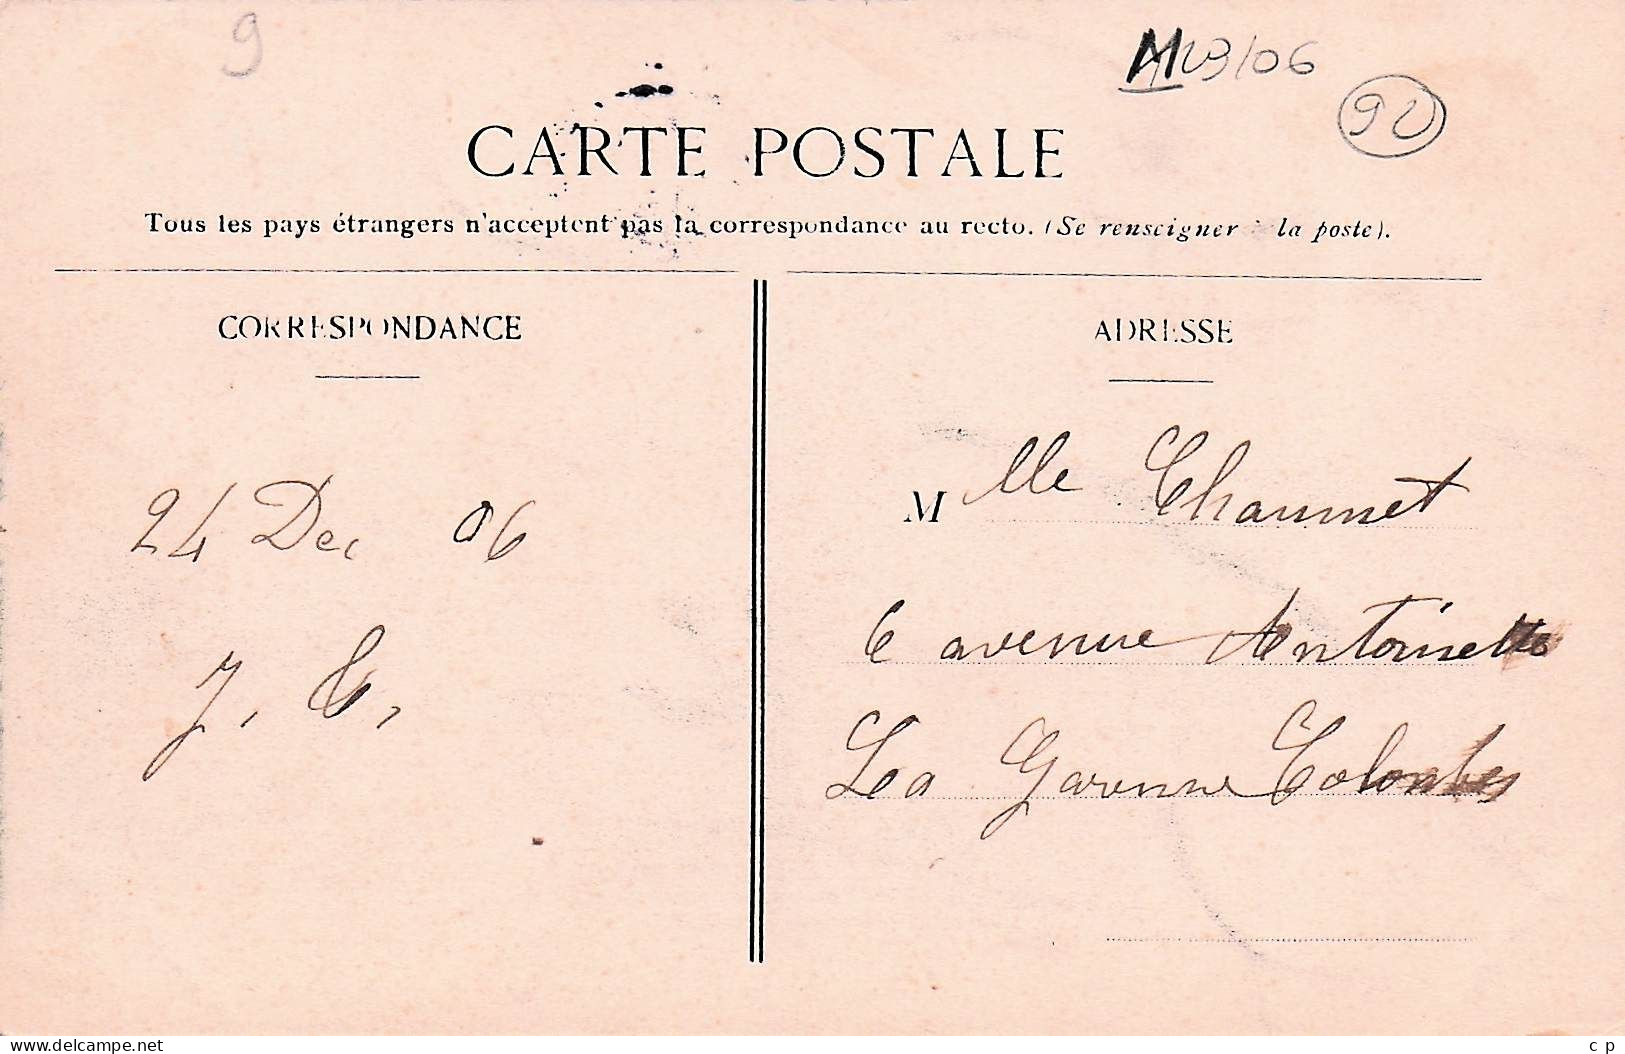 9
AA29/06
92
CARTE POSTALE
Tous les pays étrangers n'acceptent pas la correspondance au recto. (Se renseigner à la poste).
CORRESPONDANCE
ADRESSE
24 Dec 06
J. C.
Mlle Chaumet
6 avenue Antoinette
La Garenne Colombes
delcampe.net
c p